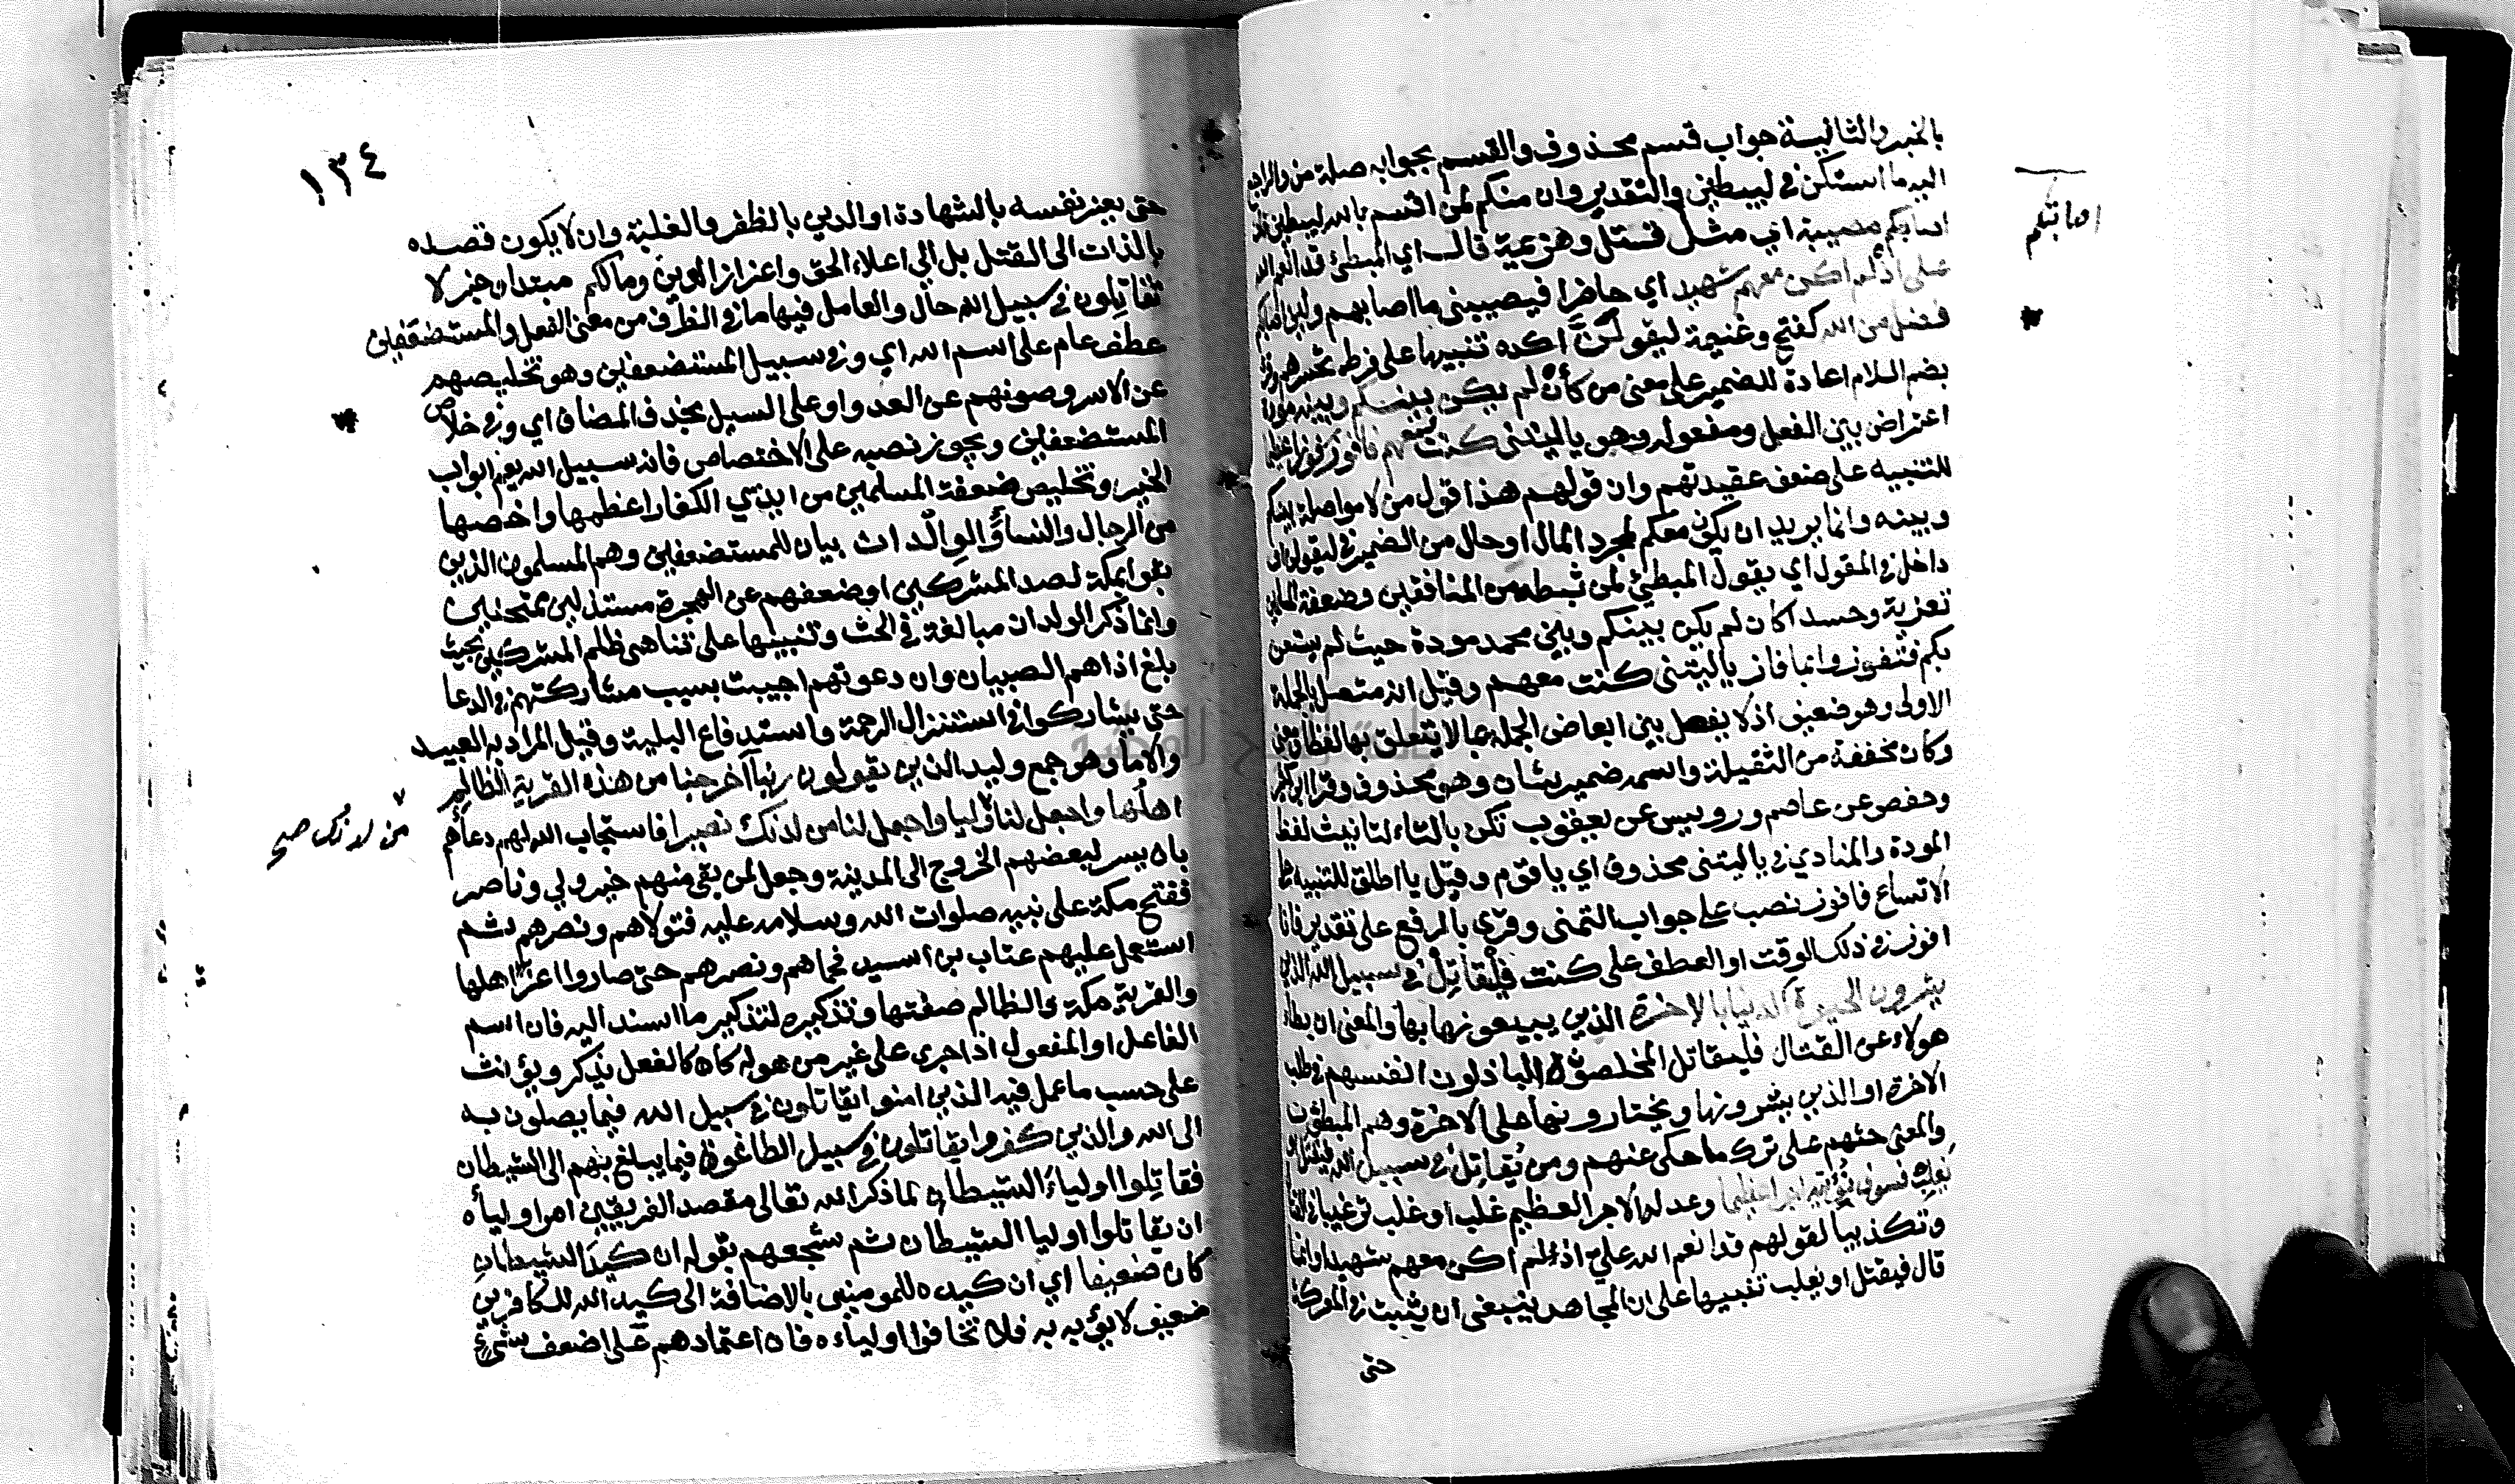 بالخبر والثانية جواب قسم محذوف والقسم بجوابه صلة من والراجع
اليه ما استكن في ليبطئن والتقدير وان منكم لمن اقسم بالله ليبطئن فان
اصابتكم مصيبة اي مثل قتل وهزيمة قال اي المبطئ قد انعم الله
علي اذ لم اكن معهم شهيدا اي حاضرا فيصيبني ما اصابهم ولئن اصابكم
فضل من الله كفتح وغنيمة ليقولن اكده تنبيها على فرط تحسرهم وقرئ
بضم اللام اعادة للضمير على معنى من كأن لم يكن بينكم وبينه مودة
اعتراض بين الفعل ومفعوله وهو يا ليتني كنت معهم فافوز فوزا عظيما
للتنبيه على ضعف عقيدتهم وان قولهم هذا قول من لا مواصلة بينكم
وبينه وانما يريد ان يكون معكم لمجرد المال او حال من الضمير في ليقولن او
داخل في المقول اي يقول المبطئ لمن ثبطه من المنافقين وضعفة المسلمين
تعزية وحسدا كان لم يكن بينكم وبين محمد مودة حيث لم يستعن
بكم فتفوزوا بما فاز يا ليتني كنت معهم وقيل انه متصل بالجملة
الاولى وهو ضعيف اذ لا يفصل بين ابعاض الجملة بما لا يتعلق بها لفظا ومعنى
وكان مخففة من الثقيلة واسمه ضمير شان وهو محذوف وقرا ابن كثير
وحفص عن عاصم ورويس عن يعقوب تكن بالتاء لتانيث لفظ
المودة والمنادي في يا ليتني محذوف اي يا قوم وقيل يا اطلق للتنبيه على
الاتساع فافوز نصب على جواب التمني وقرئ بالرفع على تقدير فانا
افوز في ذلك الوقت او العطف على كنت فليقاتل في سبيل الله الذين
يشرون الحيوة الدنيا بالاخرة الذين يبيعونها بها والمعنى ان بطأ
هولاء عن القتال فليقاتل المخلصون الباذلون انفسهم في طلب
الاخرة او الذين يشرونها ويختارونها على الاخرة وهم المبطئون
والمعنى حثهم على ترك ما حكى عنهم ومن يقاتل في سبيل الله فيقتل او
يغلب فسوف نؤتيه اجرا عظيما وعد له الاجر العظيم غلب او غلب ترغيبا في القتال
وتكذيبا لقولهم قد انعم الله علي اذ لم اكن معهم شهيدا وانما
قال فيقتل او يغلب تنبيها على ان المجاهد ينبغي ان يثبت في المعركة
حتى
اصابتكم
١٣٤
حتى يعز نفسه بالشهادة او الدين بالظفر والغلبة وان لا يكون قصده
بالذات الى القتل بل الى اعلاء الحق واعزاز الدين وما لكم مبتدا وخبر لا
تقاتلون في سبيل الله حال والعامل فيها ما في الظرف من معنى الفعل والمستضعفين
عطف عام على اسم الله اي وفي سبيل المستضعفين وهو تخليصهم
عن الاسر وصونهم عن العدو او على السبيل بحذف المضاف اي وفي خلاص
المستضعفين ويجوز نصبه على الاختصاص فانه سبيل الله يعم ابواب
الخير وتخليص ضعفة المسلمين من ايدي الكفار اعظمها واخصها
من الرجال والنساء والولدان بيان للمستضعفين وهم المسلمون الذين
بقوا بمكة لصد المشركين او ضعفهم عن الهجرة مستذلين ممتحنين
وانما ذكر الولدان مبالغة في الحث وتنبيها على تناهي ظلم المشركين بحيث
بلغ اذاهم الصبيان وان دعوتهم اجيبت بسبب مشاركتهم في الدعا
حتى يشاركوا في استنزال الرحمة واستدفاع البلية وقيل المراد به العبيد
والاماء وهو جمع وليد الذين يقولون ربنا اخرجنا من هذه القرية الظالم
اهلها واجعل لنا وليا واجعل لنا من لدنك نصيرا فاستجاب الله لهم دعاءهم
بان يسر لبعضهم الخروج الى المدينة وجعل لمن بقي منهم خير ولي وناصر
ففتح مكة على نبيه صلوات الله وسلامه عليه فتولاهم ونصرهم ثم
استعمل عليهم عتاب بن اسيد فحماهم ونصرهم حتى صاروا اعز اهلها
والقرية مكة والظالم صفتها وتذكيره لتذكير ما اسند اليه فان اسم
الفاعل او المفعول اذا جرى على غير من هو له كان كالفعل يذكر ويؤنث
على حسب ما عمل فيه الذين امنوا يقاتلون في سبيل الله فيما يصلون به
الى الله والذين كفروا يقاتلون في سبيل الطاغوت فيما يبلغ بهم الى الشيطان
فقاتلوا اولياء الشيطان لما ذكر الله تعالى مقصد الفريقين امر اولياءه
ان يقاتلوا اوليا الشيطان ثم شجعهم بقوله ان كيد الشيطان
كان ضعيفا اي ان كيده للمومنين بالاضافة الى كيد الله للكافرين
ضعيف لا يؤبه به فلا تخافوا اولياءه فان اعتمادهم على اضعف شيء
من لدنك صح